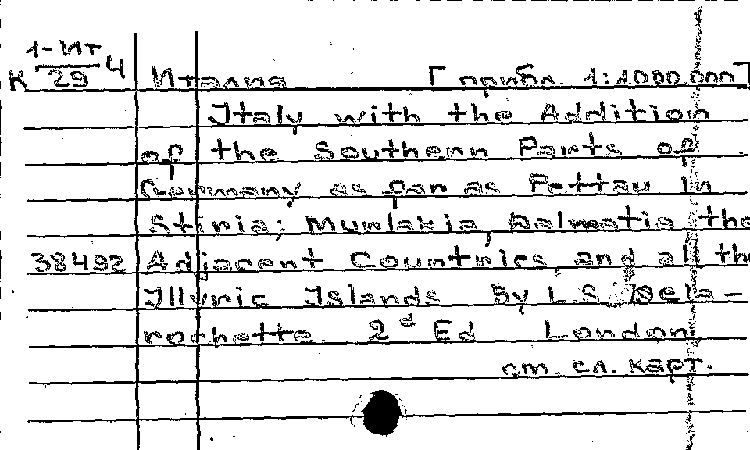 К 1-Ит/29 4 Италия [прибл. 1:1.000.000]
Italy with the Addition
of the Southern Parts of
Germany as far as Pettau in
Stiria; Murlakia, Dalmatia the
38492 Adjacent Countries and all the
Illyric Islands By L.S. Dela-
rochette 2d Ed London
см. сл. карт.